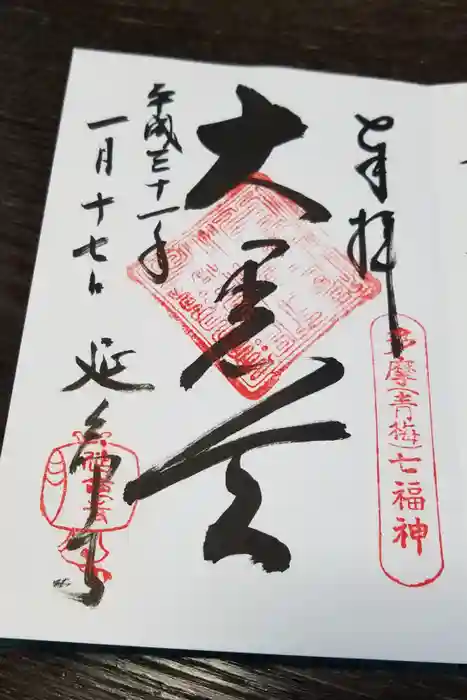 奉拝
多摩(青梅)七福神
大黒天
平成三十一年
一月十七日
延命寺